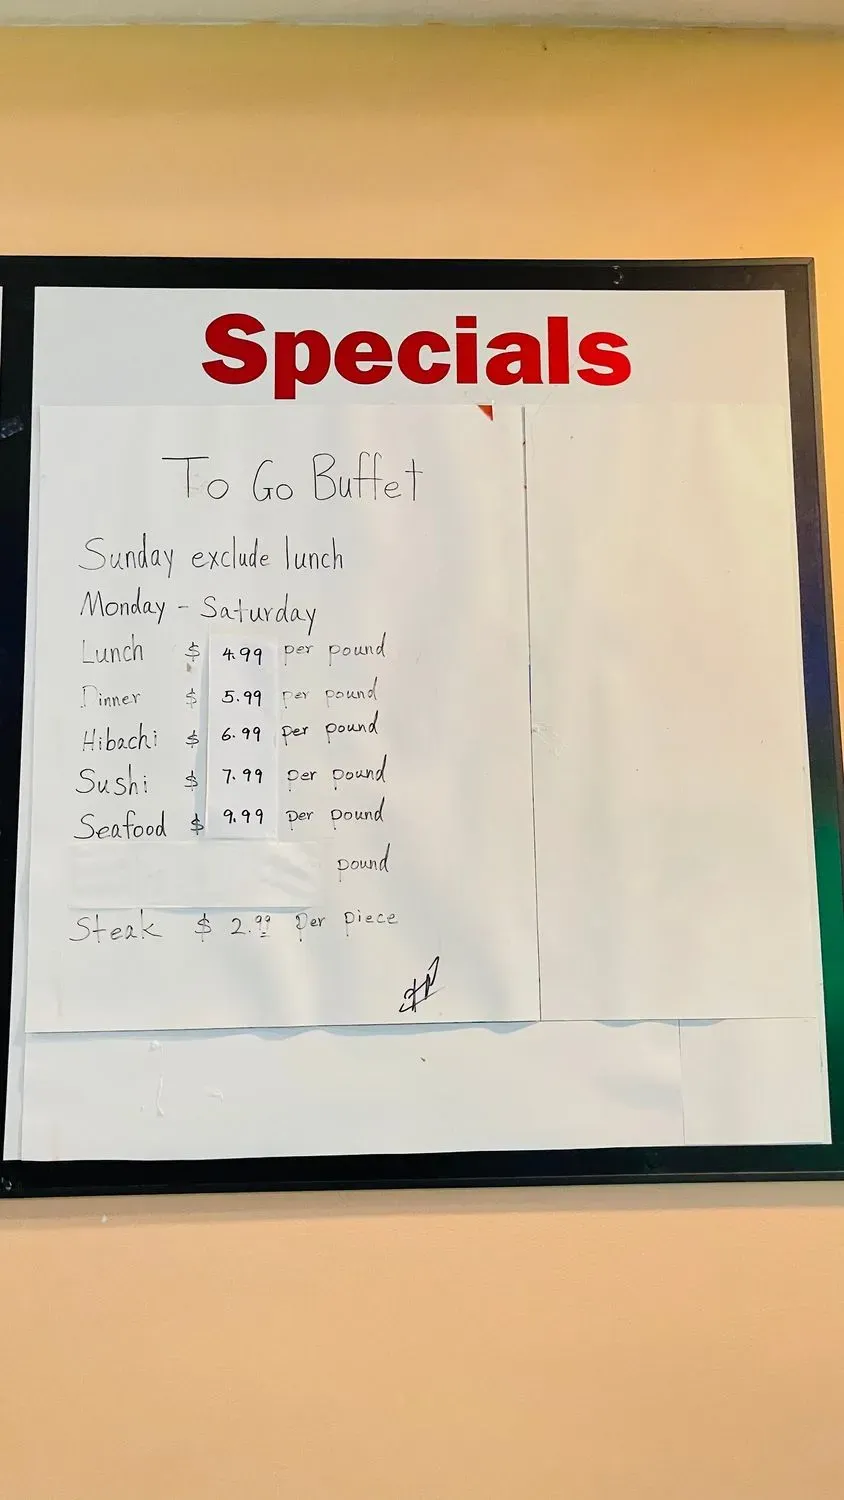 Specials
To Go Buffet
Sunday exclude lunch
Monday - Saturday
Lunch $ 4.99 per pound
Dinner $ 5.99 per pound
Hibachi $ 6.99 per pound
Sushi $ 7.99 per pound
Seafood $ 9.99 per pound
pound
Steak $ 2.99 per piece